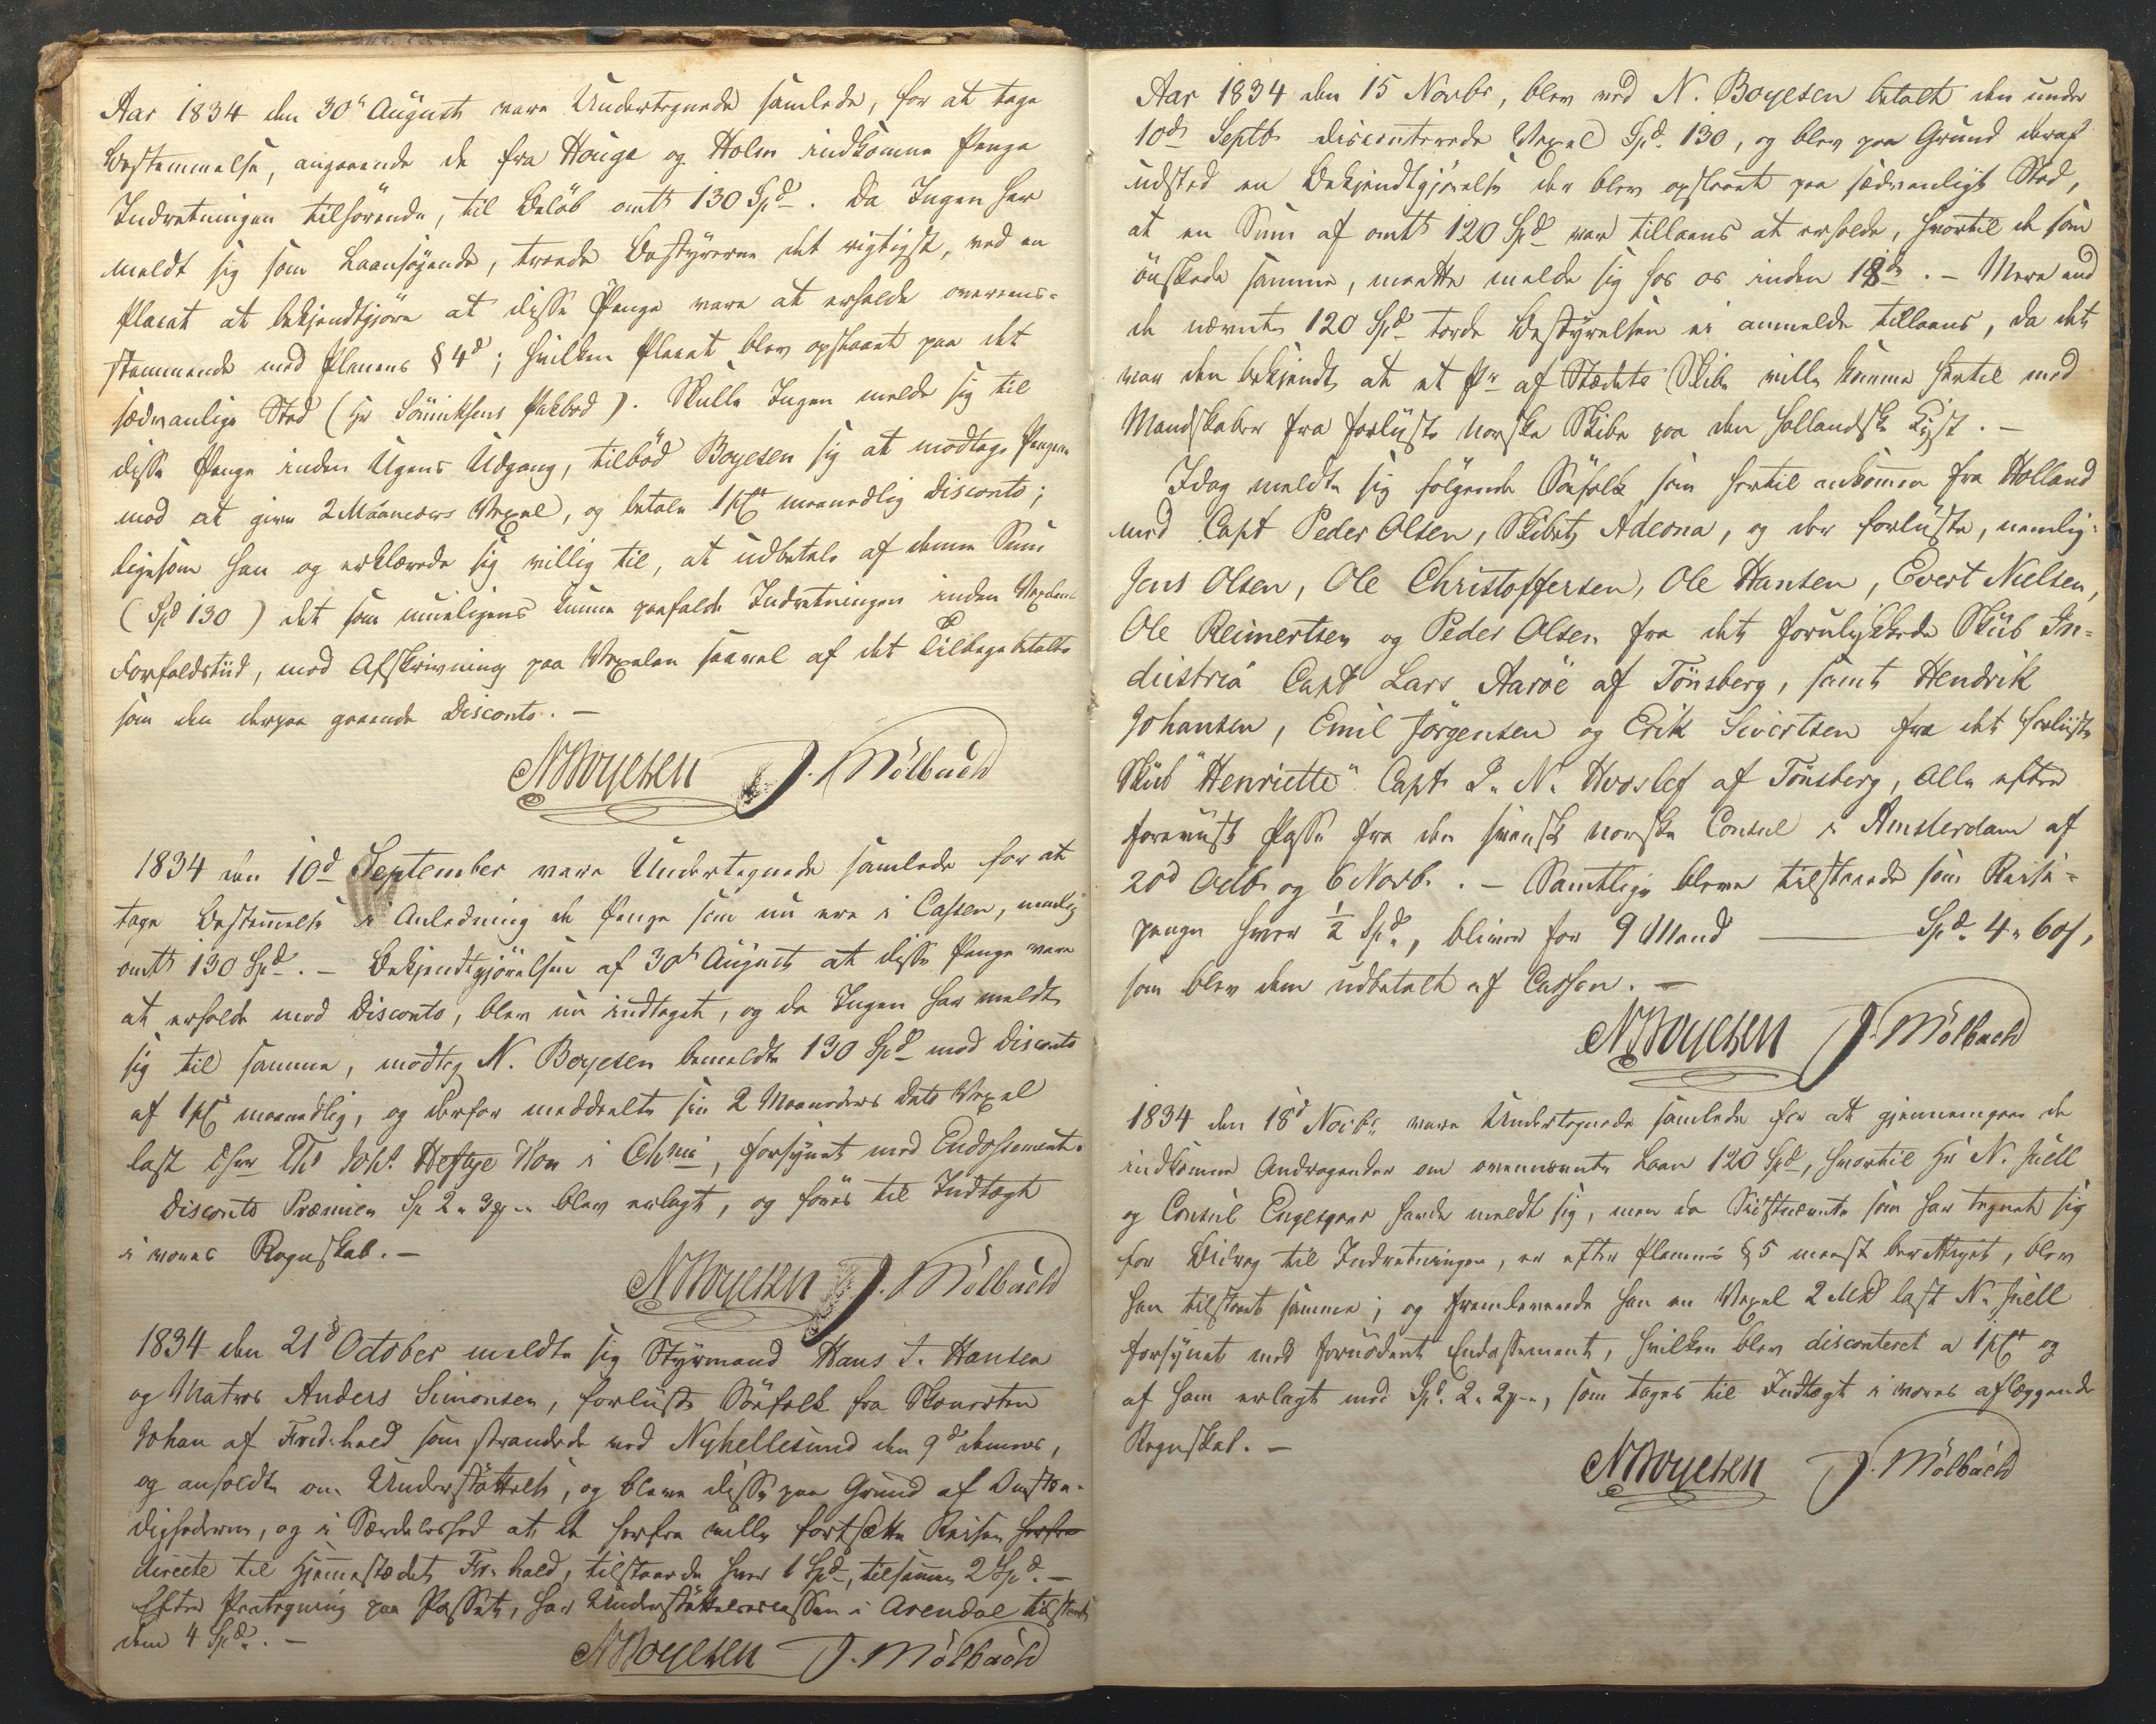 Aar 1834 den 30te August vare Undertegnede samlede, for at tage
Bestemmelse, angaaende de fra Houge og Holm indkomne Penge
Indretningen tilhørende, til Beløb omtt 130 Spd. Da Ingen har
meldt sig som Laansøgende, troede Bestyrerne det rigtigst, ved en
Placat at bekjendtgjøre at disse Penge vare at erholde overeens-
stemmende med Planens §4d; hvilken Placat blev opslaaet paa det
sædvanlige Sted (Hr Sönniksens Pakbod). Skulle Ingen melde sig til
disse Penge inden Ugens Udgang, tilbød Boyesen sig at modtage Pengene
mod at give 2 Maaneders Vexel, og betale 1 pCt maanedlig Disconto;
ligesom han og erklærede sig villig til, at udbetale af denne Sum
(Spd 130) det som mueligens kunne paafalde Indretningen inden Vexelens
Forfaldstiid, mod Afskrivning paa Vexelen saavel af det Tilbagebetalte
som den derpaa gaaende Disconto. -
NBoyesen J. Mølbach
1834 den 10d September vare Undertegnede samlede for at
tage Bestemelse i Anledning de Penge som nu ere i Cassen, nemlig
omtt 130 Spd. - Bekjendtgjørelsen af 30te August at disse Penge vare
at erholde mod Disconto, blev nu indtaget, og da Ingen har meldt
sig til samme, modtog N. Boyesen bemeldte 130 Spd mod Disconto
af 1 pCt maanedlig, og derfor meddeelte sin 2 Maaneders dato Vexel
last Ths Johs Heftye Søn i Chnia, forsynet med Endossement.
Disconto Præmien Sp 2 „ 3 „ blev erlagt, og føres til Indtægt
i vores Regnskab. -
NBoyesen J. Mølbach
1834 den 21d October meldte sig Styrmand Hans J. Hansen
og Matros Anders Simonsen, forliiste Søefolk fra Skonerten
Johan af Fredr.hald som strandede ved Nyhellesund den 9d dennes,
og anholdte om Understøttelse, og bleve disse paa Grund af Omstæn-
dighederne, og i Særdeleshed at de herfra ville fortsætte Reisen herfra
directe til Hjemmestedet Fr.hald, tilstaaede hver 1 Spd, tilsamen 2 Spd. -
Efter Paategning paa Passet, har Understøttelsescassen i Arendal tilstaaet
dem 4 Spd. -
NBoyesen J. Mølbach
Aar 1834 den 15 Novbr, blev ved N. Boyesen betalt den under
10de Septb discouterede Vexel Spd. 130, og blev paa Grund deraf
udsted en Bekjendtgjørelse der blev opslaaet paa sædvanligt Sted,
at en Sum af omtt 120 Spd var tillaans at erholde, hvortil de som
ønskede samme, maatte melde sig hos os inden 18de. - Mere end
de nævnte 120 Spd torde Bestyrelsen ei anmelde tillaans, da det
var den bekjendt, at et Pr af Stædets Skibe ville komme hertil med
Mandskaber fra forliiste norske Skibe paa den hollandske Kyst. -
Idag meldte sig følgende Søefolk som hertil ankommen fra Holland
med Capt Peder Olsen, Skibet Adeona, og der forliiste, nemlig:
Jens Olsen, Ole Christoffersen, Ole Hansen, Evert Nielsen,
Ole Reimertsen og Peder Olsen fra det forulykkede Skiib In-
dustria Capt Lars Aarøe af Tønsberg, samt Hendrik
Johansen, Emil Jørgensen og Erik Sivertsen fra det forliiste
Skiib "Henriette" Capt J. N. Hvoslef af Tønsberg, Alle efter
foreviist Passe fra den svensk norske Consul i Amsterdam af
20d Octb og 6 Novb. - Samtlige bleve tilstaaede som Reise-
penge hver 1/2 Spd., bliver for 9 Mand — Spd. 4 „ 60 s,
som blev dem udbetalt af Cassen. -
NBoyesen J. Mølbach
1834 den 18d Novbr. vare Undertegnede samlede for at gjennemgaae de
indkomne Andragender om ovennævnte Laan 120 Spd, hvortil Hr N. Juell
og Consul Engesgaar havde meldt sig, men da Sidstnævnte som har tegnet sig
for Bidrag til Indretningen, er efter Planens §5 meest berettiget, blev
han tilstaaet samme; og fremleverede han en Vexel 2 Mdr last N. Juell
forsynet med fornødent Endossement, hvilken blev disconteret a 1 pCt og
af ham erlagt med Spd. 2 „ 2 „, som tages til Indtægt i vores aflæggende
Regnskab. -
NBoyesen J. Mølbach